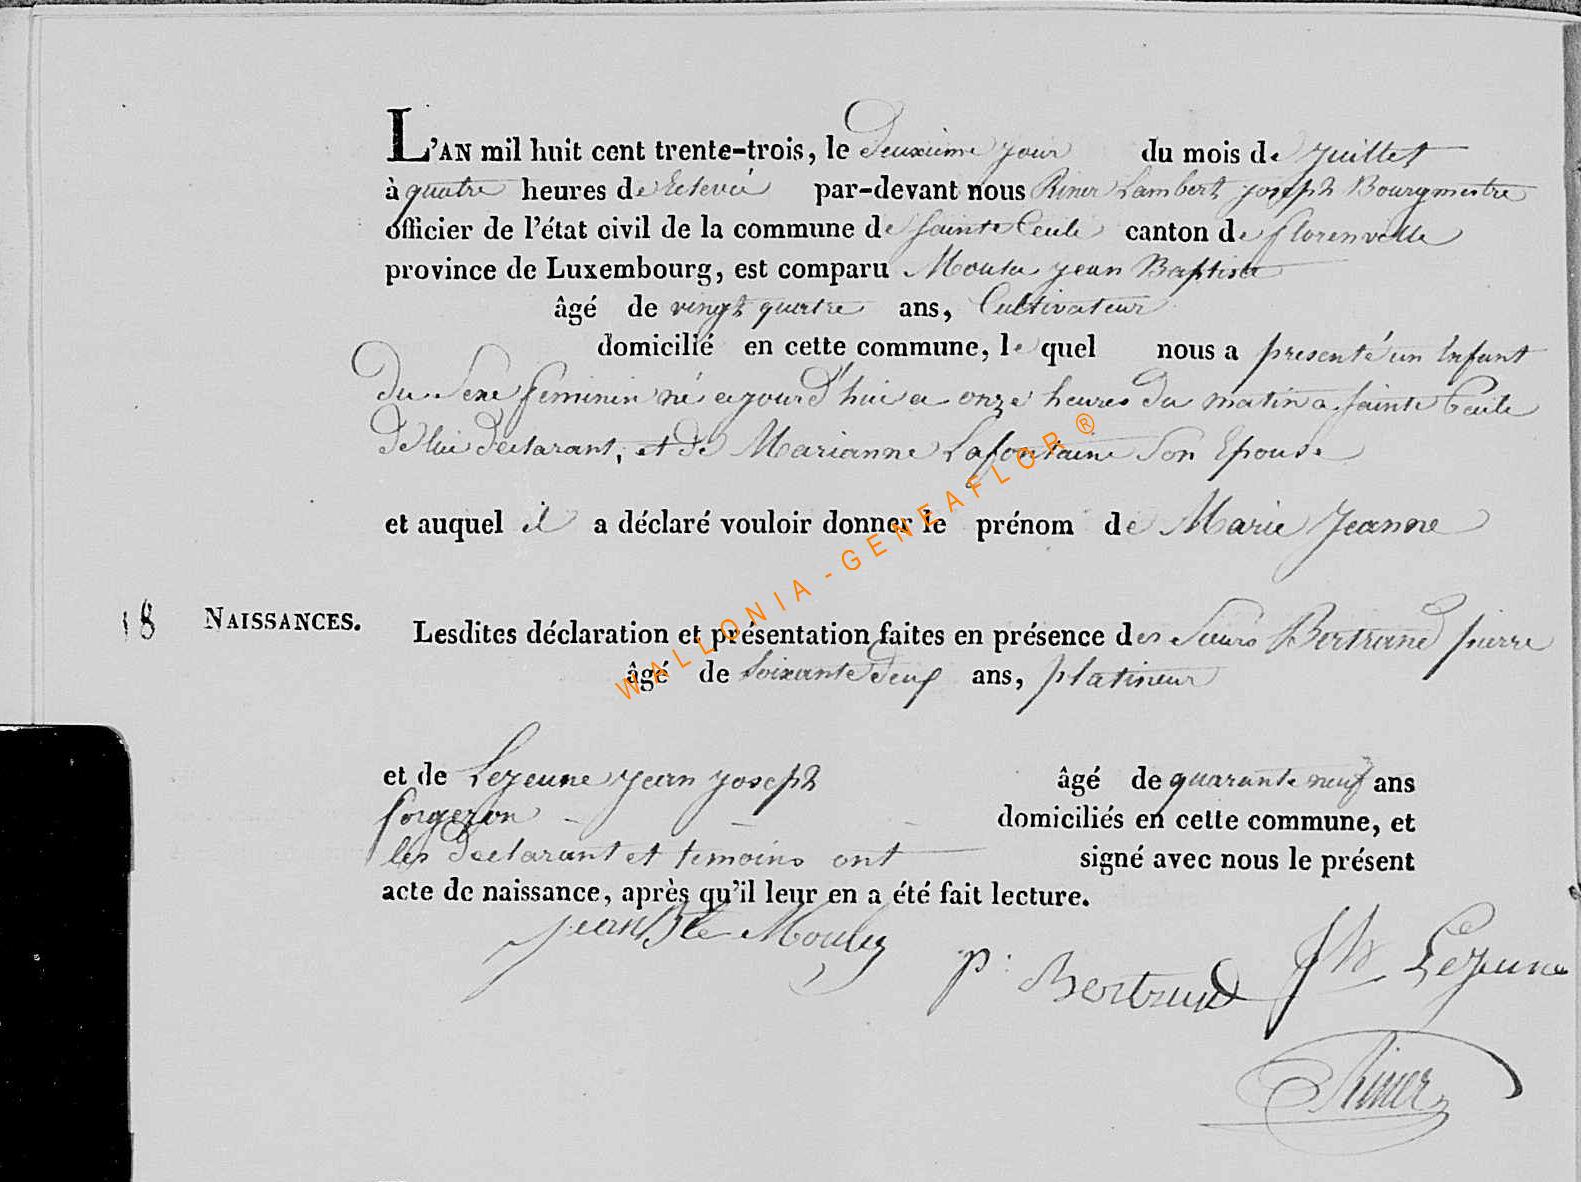 L'AN mil huit cent trente-trois, le Deuxieme jour du mois de juillet
à quatre heures de Relevée par-devant nous Riner Lambert joseph Bourgmestre
officier de l'état civil de la commune de Sainte Cecile canton de florenville
province de Luxembourg, est comparu jean Baptiste
âgé de vingt quatre ans, Cultivateur
domicilié en cette commune, le quel nous a presenté un Enfant
du Sexe feminin né ajourd'hui a onze heures du matin a Sainte Cecile
de lui declarant, et de Marianne Lafontaine Son Epouse
et auquel il a déclaré vouloir donner le prénom de Marie Jeanne
18 NAISSANCES.
Lesdites déclaration et présentation faites en présence des Sieurs Bertrand pierre
âgé de Soixante Deux ans, platineur
et de Lejeune jean joseph âgé de quarante neuf ans
forgeron domiciliés en cette commune, et
les declarant et temoins ont signé avec nous le présent
acte de naissance, après qu'il leur en a été fait lecture.
Jean Bte
p: Bertrand
Lejeune
Riner
WALLONIA-GENEAFLOR®